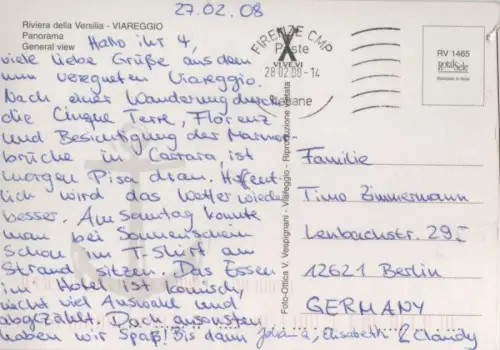 27.02.08
Riviera della Versilia - VIAREGGIO
Panorama
General view
Hallo ihr 4,
viele liebe Grüße aus dem
nun verregneten Viareggio.
Nach einer Wanderung durch
die Cinque Terre, Florenz
und Besichtigung der Marmor-
brüche in Carrara, ist
morgen Pisa dran. Hoffent-
lich wird das Wetter wieder
besser. Am Samstag konnte
man bei Sonnenschein
schon im T-Shirt am
Strand sitzen. Das Essen
im Hotel ist komisch,
nicht viel Auswahl und
abgezählt. Doch ansonsten
haben wir Spaß! Bis dann
Elisabeth & Claudy
FIRENZE CMP
Poste
28.02.08-14
Italiane
RV 1465
Foto-Ottica V. Vespignani - Viareggio - Riproduzione vietata
Familie
Timo Zimmermann
Lenbachstr. 29
12621 Berlin
GERMANY